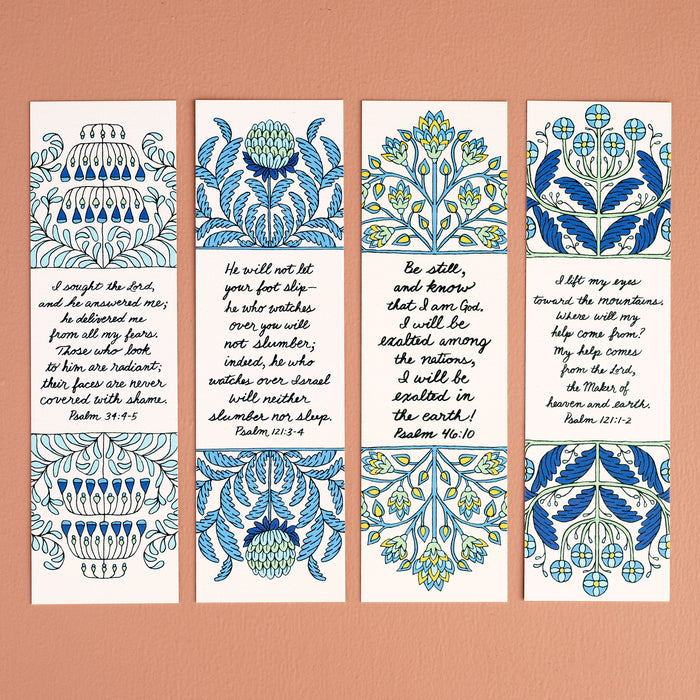 I sought the Lord,
and he answered me;
he delivered me
from all my fears.
Those who look
to him are radiant;
their faces are never
covered with shame.
Psalm 34:4-5
He will not let
your foot slip—
he who watches
over you will
not slumber;
indeed, he who
watches over Israel
will neither
slumber nor sleep.
Psalm 121:3-4
Be still,
and know
that I am God.
I will be
exalted among
the nations,
I will be
exalted in
the earth!
Psalm 46:10
I lift my eyes
toward the mountains.
Where will my
help come from?
My help comes
from the Lord,
the Maker of
heaven and earth.
Psalm 121:1-2